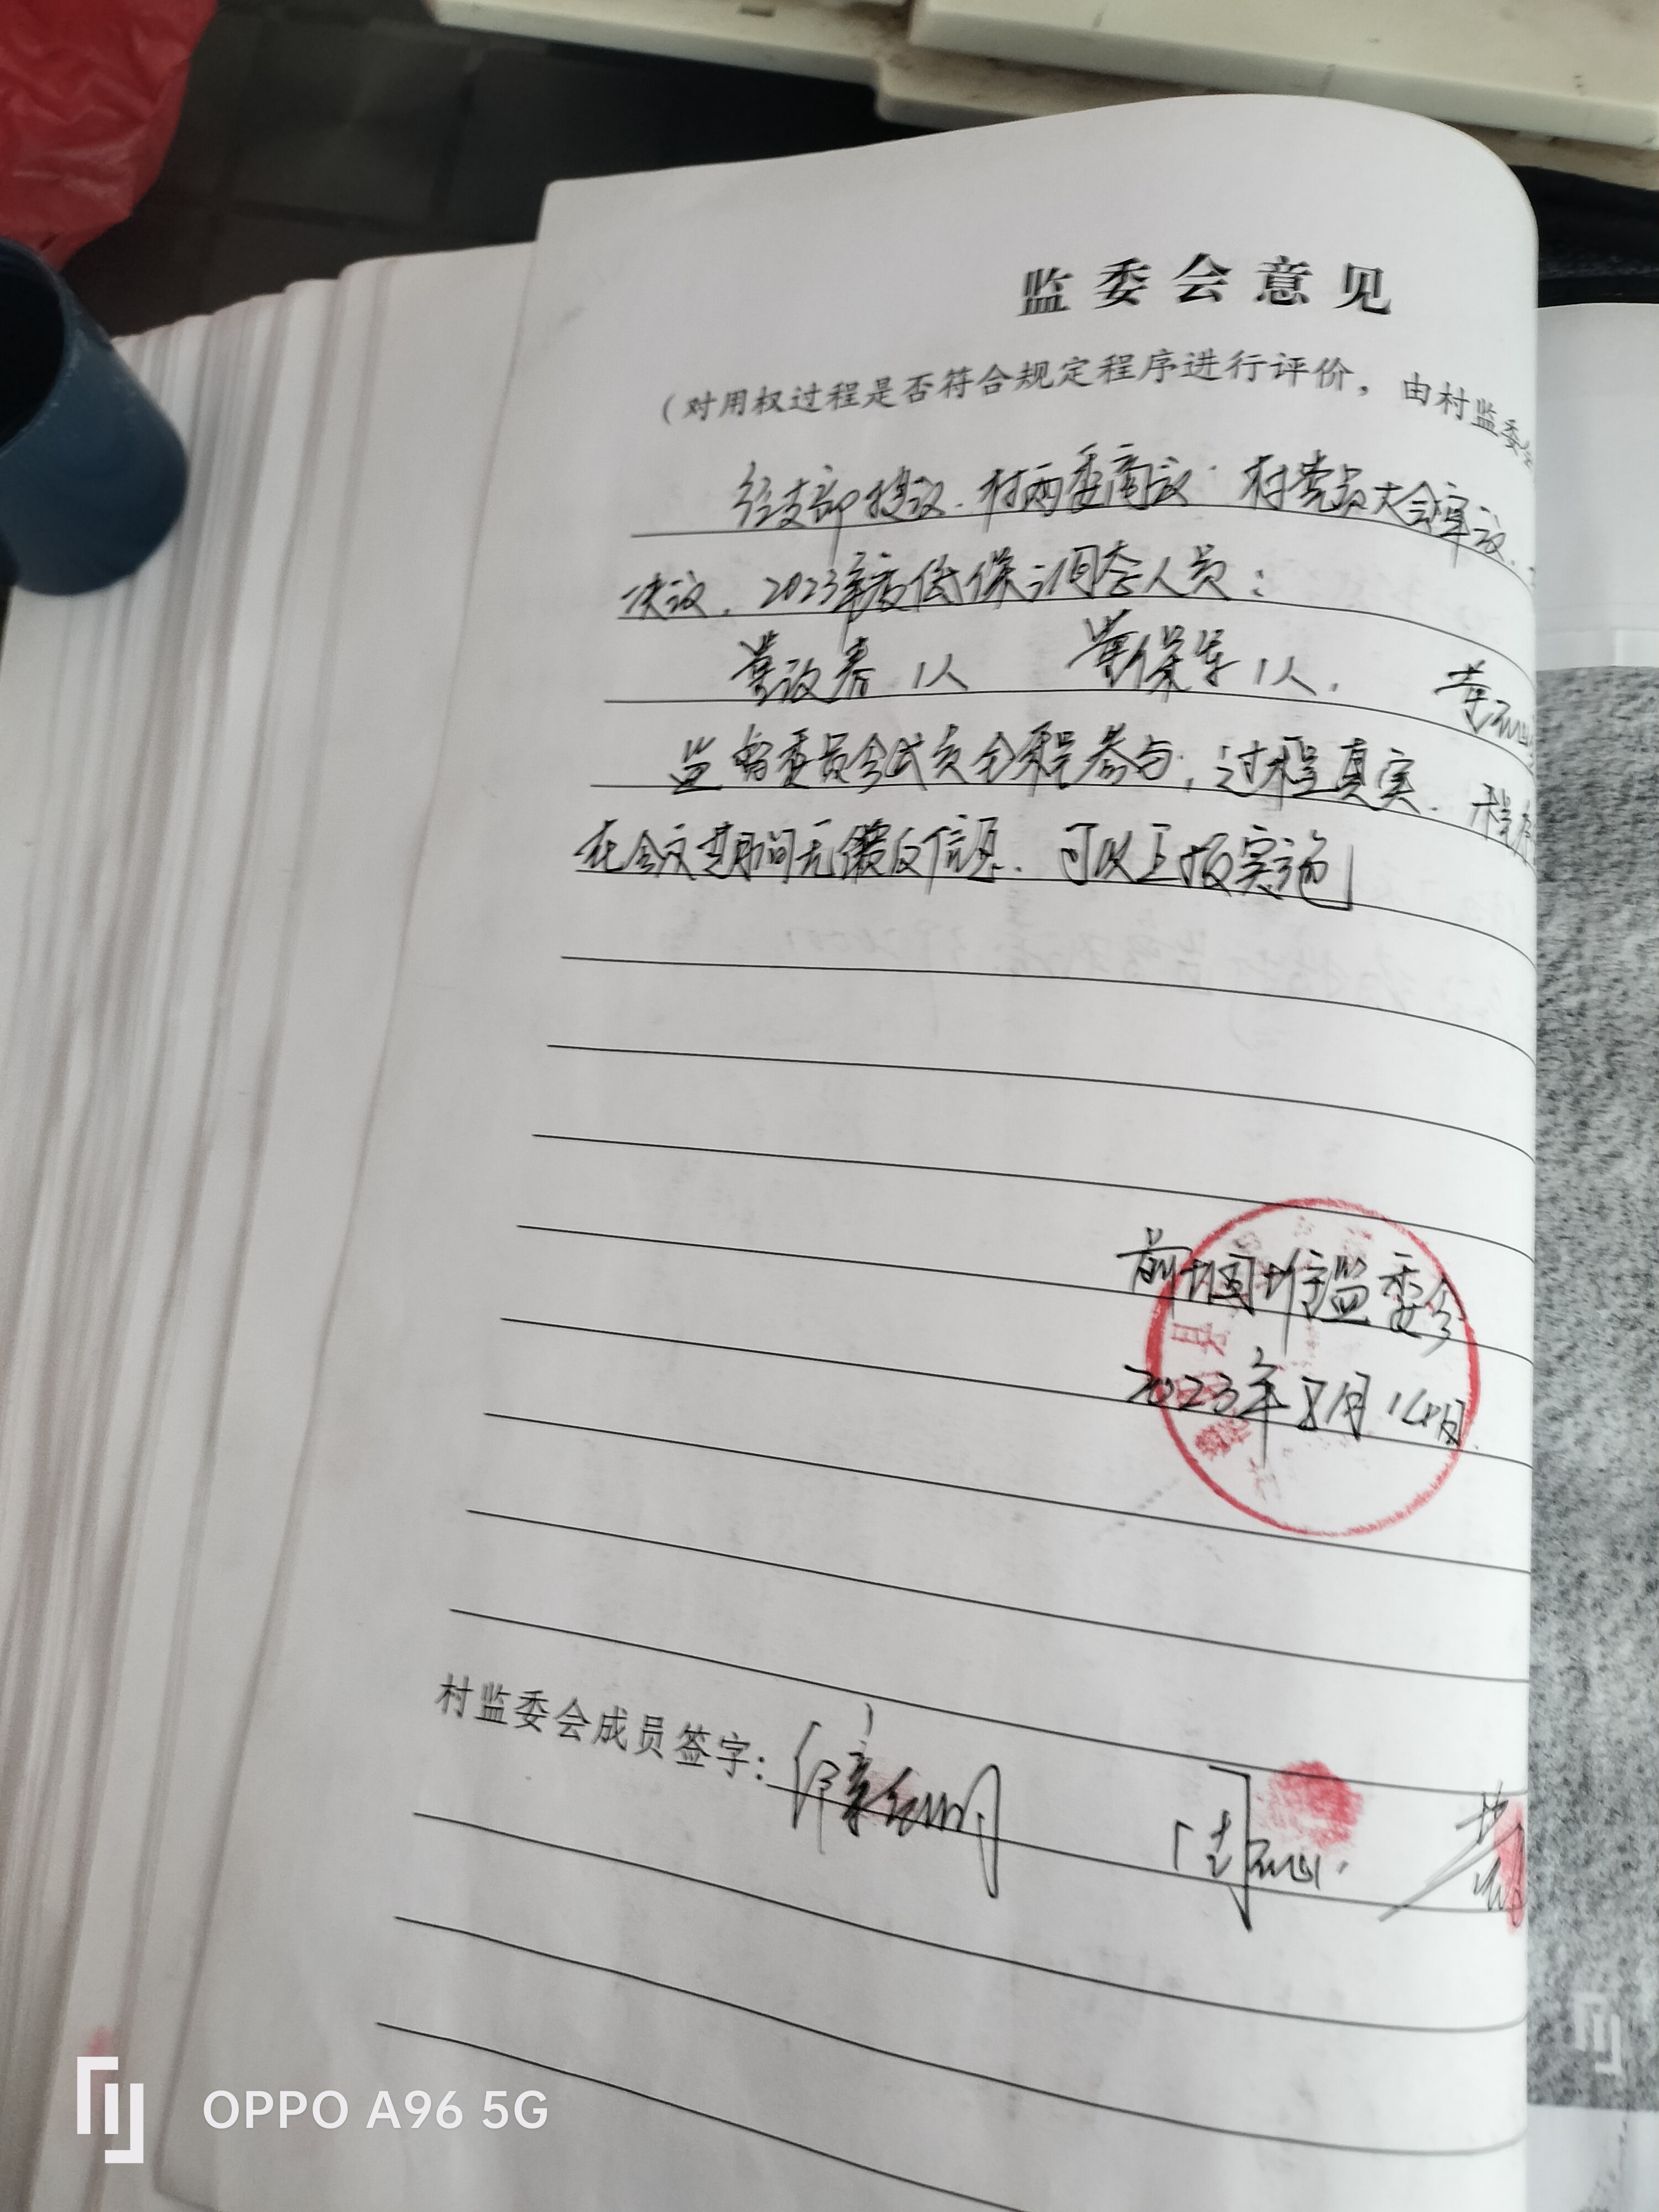 监委会意见
(对用权过程是否符合规定程序进行评价，由村监委
经支部提议.村两委商议.村党员大会审议.
决议.2023年度低保调查人员：
黄改春1人 黄保军1人.
监督委员会成员全程参与，过程真实.程序
在会议期间无馈反信息.可以上报实施
前堌堆监委会
2023年8月16日.
村监委会成员签字：
OPPO A96 5G